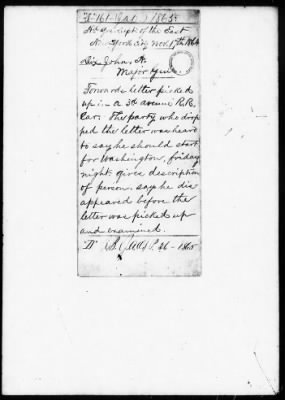 Hd Qrs Dept of the East
New York City Nov. 17th 1864
Dix John, A.
Major Genl.
Forwards letter picked
up in a 3d avenue R.R.
Car. The party who drop
ped the letter was heard
to say he should start
for Washington, friday
night. gives description
of person. says he dis
appeared before the
letter was picked up
and examined.
1865